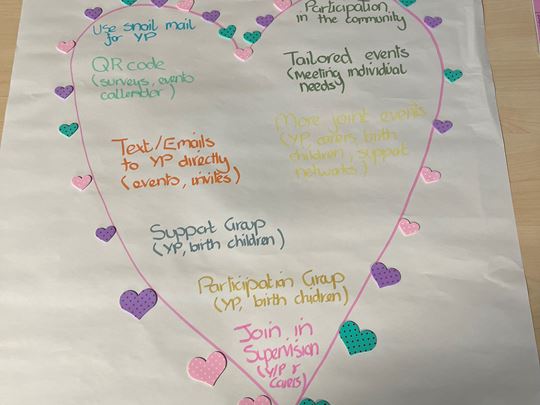 Participation
in the community
Use snail mail
for YP
QR code
(surveys, events
callender)
Tailored events
(Meeting individual
needs)
More joint events
(YP, carers, birth
children, support
networks)
Text/Emails
to YP directly
(events, invites)
Support Group
(YP, birth children)
Participation Group
(YP, birth children)
Join in
Supervision
(Y/P &
carers)